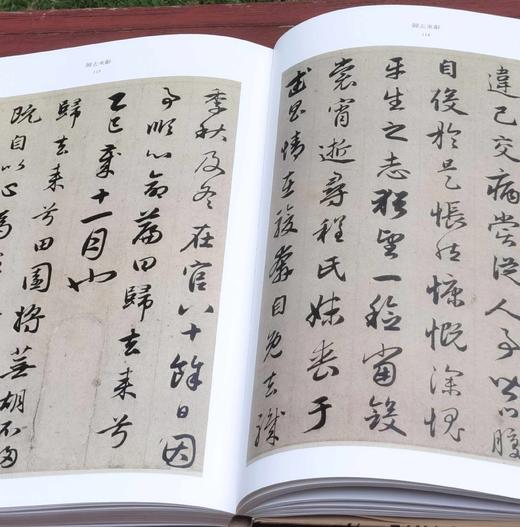 歸去來辭
114
違己交病嘗從人事皆口腹
自役於是悵然慷慨深愧
平生之志猶望一稔當斂
裳宵逝尋程氏妹喪于
武昌情在駿奔自免去職
歸去來辭
115
季秋及冬在官八十餘日因
事順心命篇曰歸去來兮
乙巳歲十一月也
歸去來兮田園將蕪胡不歸
既自以心為